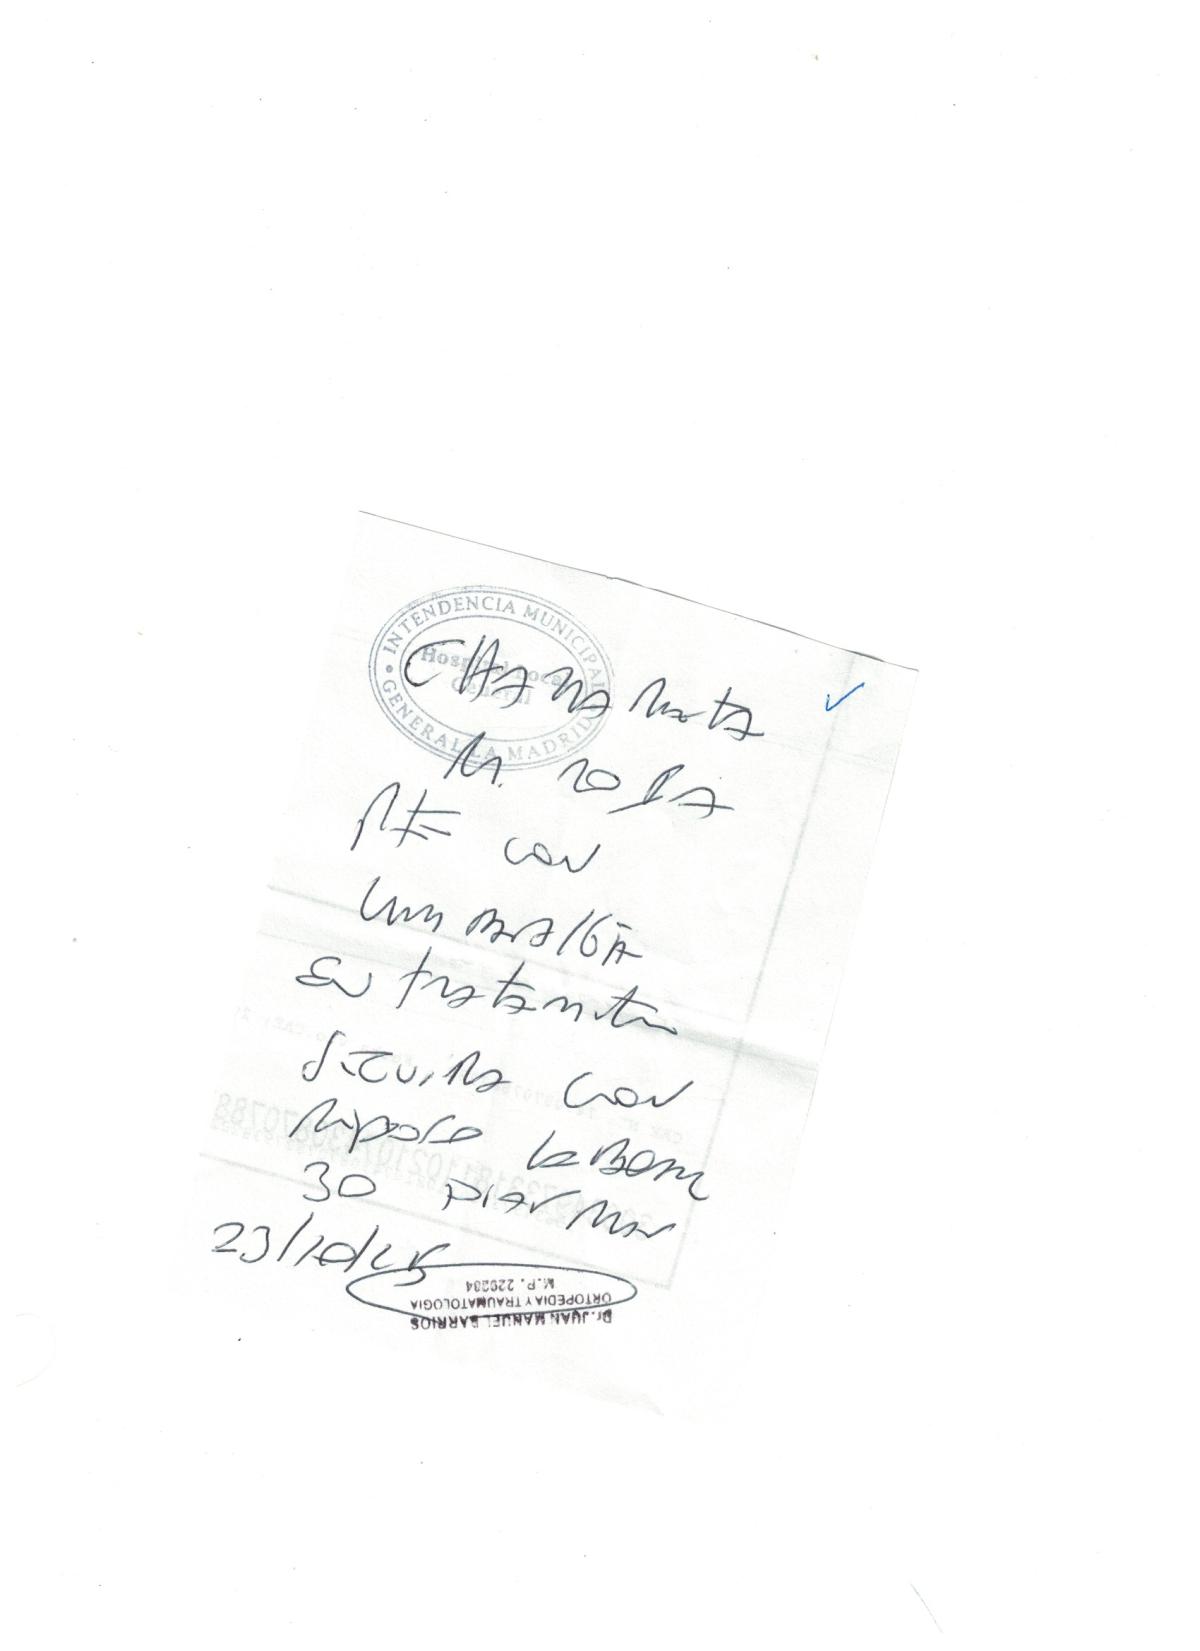 INTENDENCIA MUNICIPAL
Hospital Local
General
GENERAL LA MADRID
M. ROSA
PTE con
lumbalgia
en tratamiento
seguira con
reposo laboral
30 dias mas
23/10/25
Dr. JUAN MANUEL BARRIOS
ORTOPEDIA Y TRAUMATOLOGIA